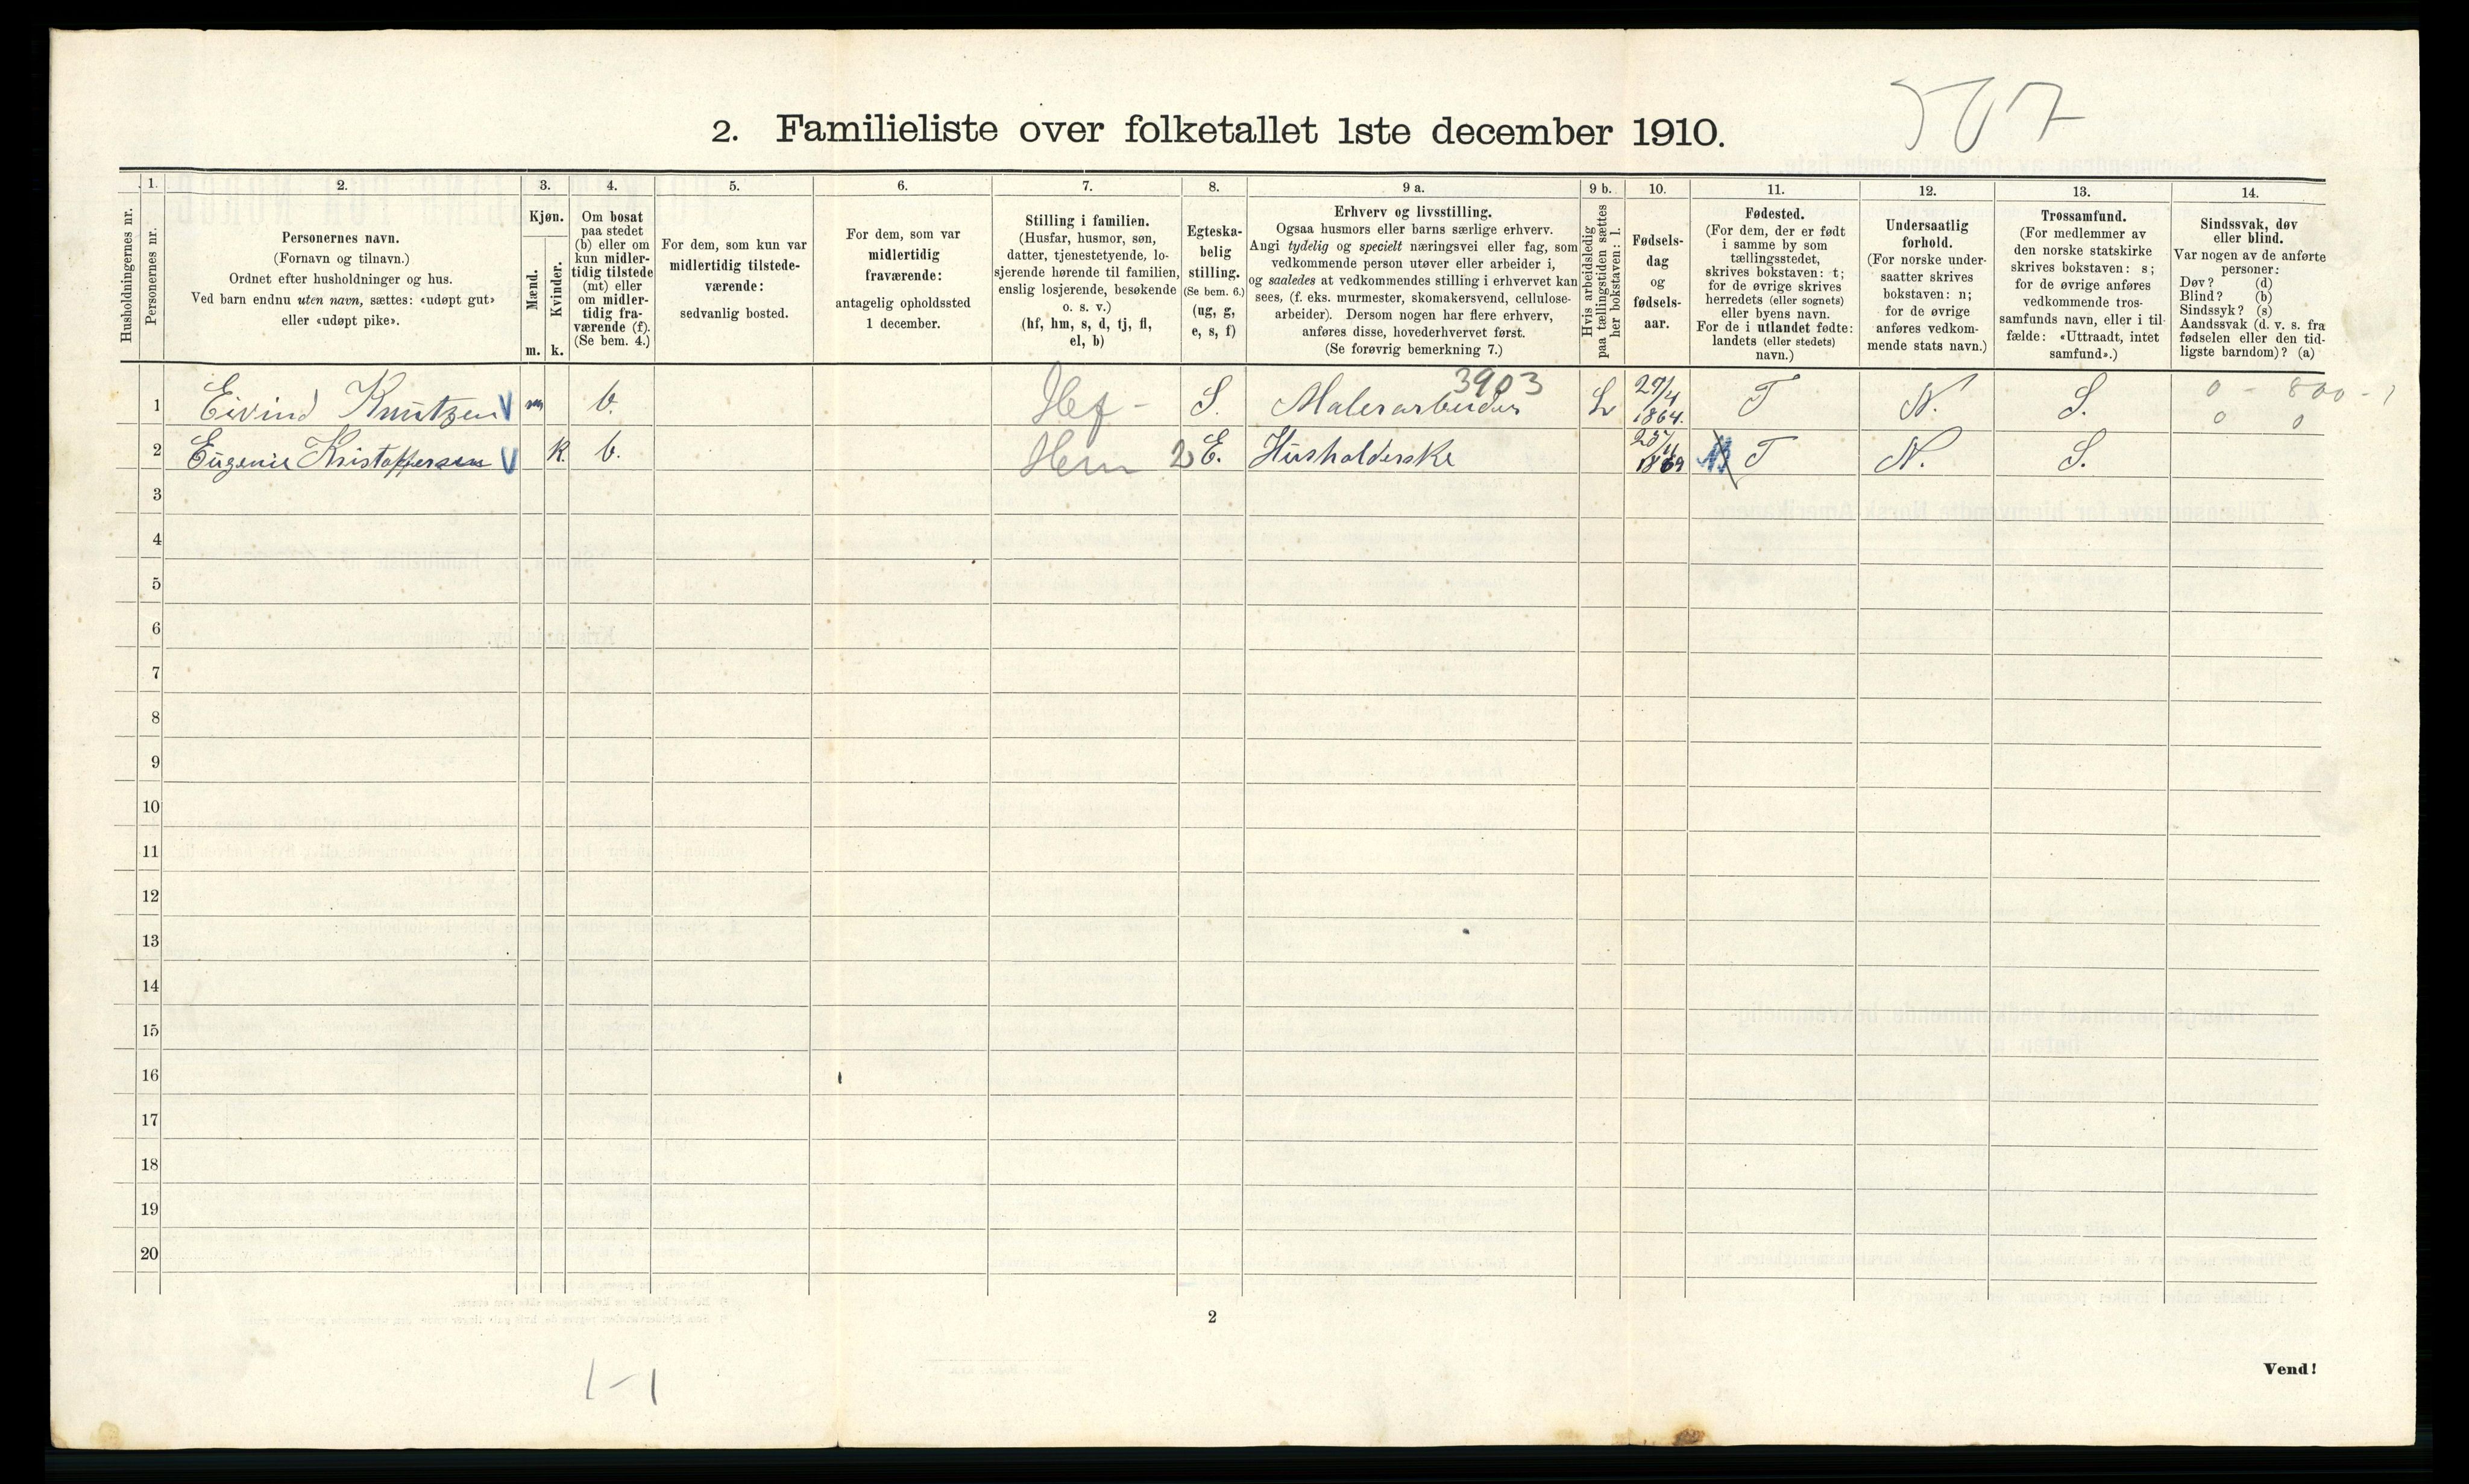 507
2. Familieliste over folketallet 1ste december 1910.
Husholdningernes nr.
1.
Personernes nr.
2.
Personernes navn.
(Fornavn og tilnavn.)
Ordnet efter husholdninger og hus.
Ved barn endnu uten navn, sættes: «udøpt gut»
eller «udøpt pike».
3.
Kjøn.
Mænd.
Kvinder.
m. k.
4.
Om bosat
paa stedet
(b) eller om
kun midler-
tidig tilstede
(mt) eller
om midler-
tidig fra-
værende (f).
(Se bem. 4.)
5.
For dem, som kun var
midlertidig tilstede-
værende:
sedvanlig bosted.
6.
For dem, som var
midlertidig
fraværende:
antagelig opholdssted
1 december.
7.
Stilling i familien.
(Husfar, husmor, søn,
datter, tjenestetyende, lo-
sjerende hørende til familien,
enslig losjerende, besøkende
o. s. v.)
(hf, hm, s, d, tj, fl,
el, b)
8.
Egteska-
belig
stilling.
(Se bem. 6.)
(ug, g,
e, s, f)
9 a.
Erhverv og livsstilling.
Ogsaa husmors eller barns særlige erhverv.
Angi tydelig og specielt næringsvei eller fag, som
vedkommende person utøver eller arbeider i,
og saaledes at vedkommendes stilling i erhvervet kan
sees, (f. eks. murmester, skomakersvend, cellulose-
arbeider). Dersom nogen har flere erhverv,
anføres disse, hovederhvervet først.
(Se forøvrig bemerkning 7.)
9 b.
Hvis arbeidsledig
paa tællingstiden sættes
her bokstaven: l.
10.
Fødsels-
dag
og
fødsels-
aar.
11.
Fødested.
(For dem, der er født
i samme by som
tællingsstedet,
skrives bokstaven: t;
for de øvrige skrives
herredets (eller sognets)
eller byens navn.
For de i utlandet fødte:
landets (eller stedets)
navn.)
12.
Undersaatlig
forhold.
(For norske under-
saatter skrives
bokstaven: n;
for de øvrige
anføres vedkom-
mende stats navn.)
13.
Trossamfund.
(For medlemmer av
den norske statskirke
skrives bokstaven: s;
for de øvrige anføres
vedkommende tros-
samfunds navn, eller i til-
fælde: «Uttraadt, intet
samfund».)
14.
Sindssvak, døv
eller blind.
Var nogen av de anførte
personer:
Døv? (d)
Blind? (b)
Sindssyk? (s)
Aandssvak (d. v. s. fra
fødselen eller den tid-
ligste barndom)? (a)
3903
1 Eivind Knutzen V m b. Hef - S. Malerarbeider L 27/4 1864. T N. S. 0 - 800 - 1
0 0
2 Eugenie Kristoffersen V K. b. Hem E. Husholderske 1869 T N. S.
3
4
5
6
7
8
9
10
11
12
13
14
15
16
17
18
19
20
2
1-1
Vend!